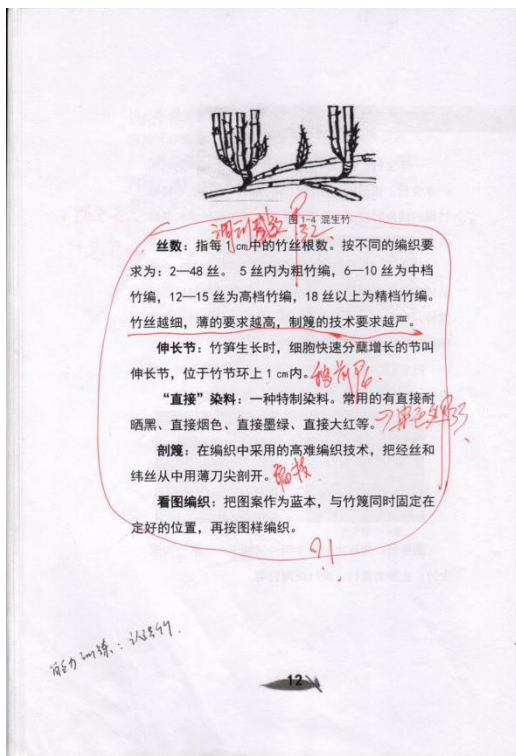 图1-4 混生竹
丝数：指每1㎝中的竹丝根数。按不同的编织要
求为：2—48丝。 5丝内为粗竹编，6—10丝为中档
竹编，12—15丝为高档竹编，18丝以上为精档竹编。
竹丝越细，薄的要求越高，制篾的技术要求越严。
伸长节：竹笋生长时，细胞快速分蘖增长的节叫
伸长节，位于竹节环上1㎝内。
“直接”染料：一种特制染料。常用的有直接耐
晒黑、直接烟色、直接墨绿、直接大红等。
剖篾：在编织中采用的高难编织技术，把经丝和
纬丝从中用薄刀尖剖开。
看图编织：把图案作为蓝本，与竹篾同时固定在
定好的位置，再按图样编织。
?!
能力训练：认识竹.
12